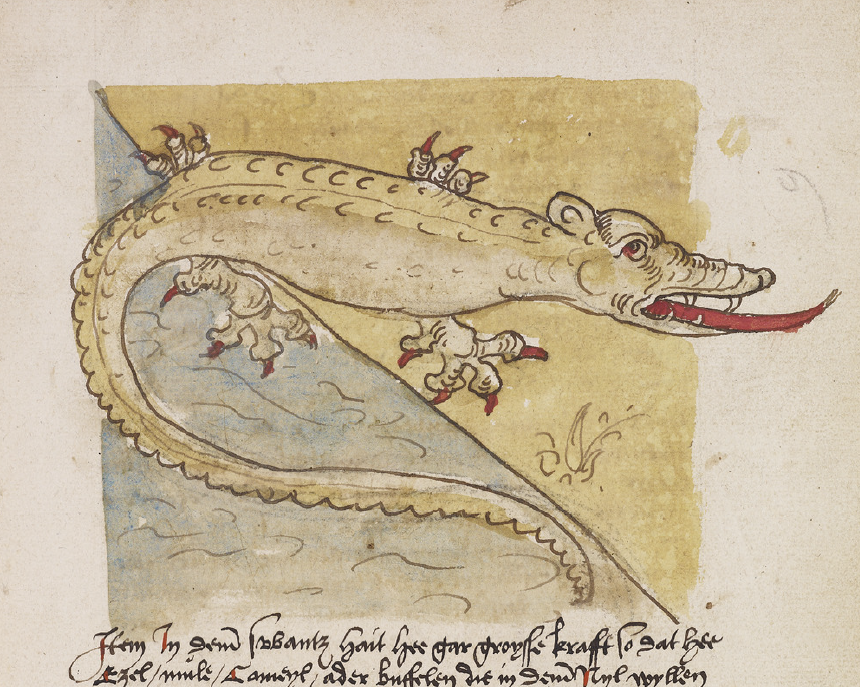 Item In dem̄ swantz hait hee gar groysse krafft so dat hee
Ezel / mule / Cameyl / ader buffelen die in dem̄ Nyl wyllen